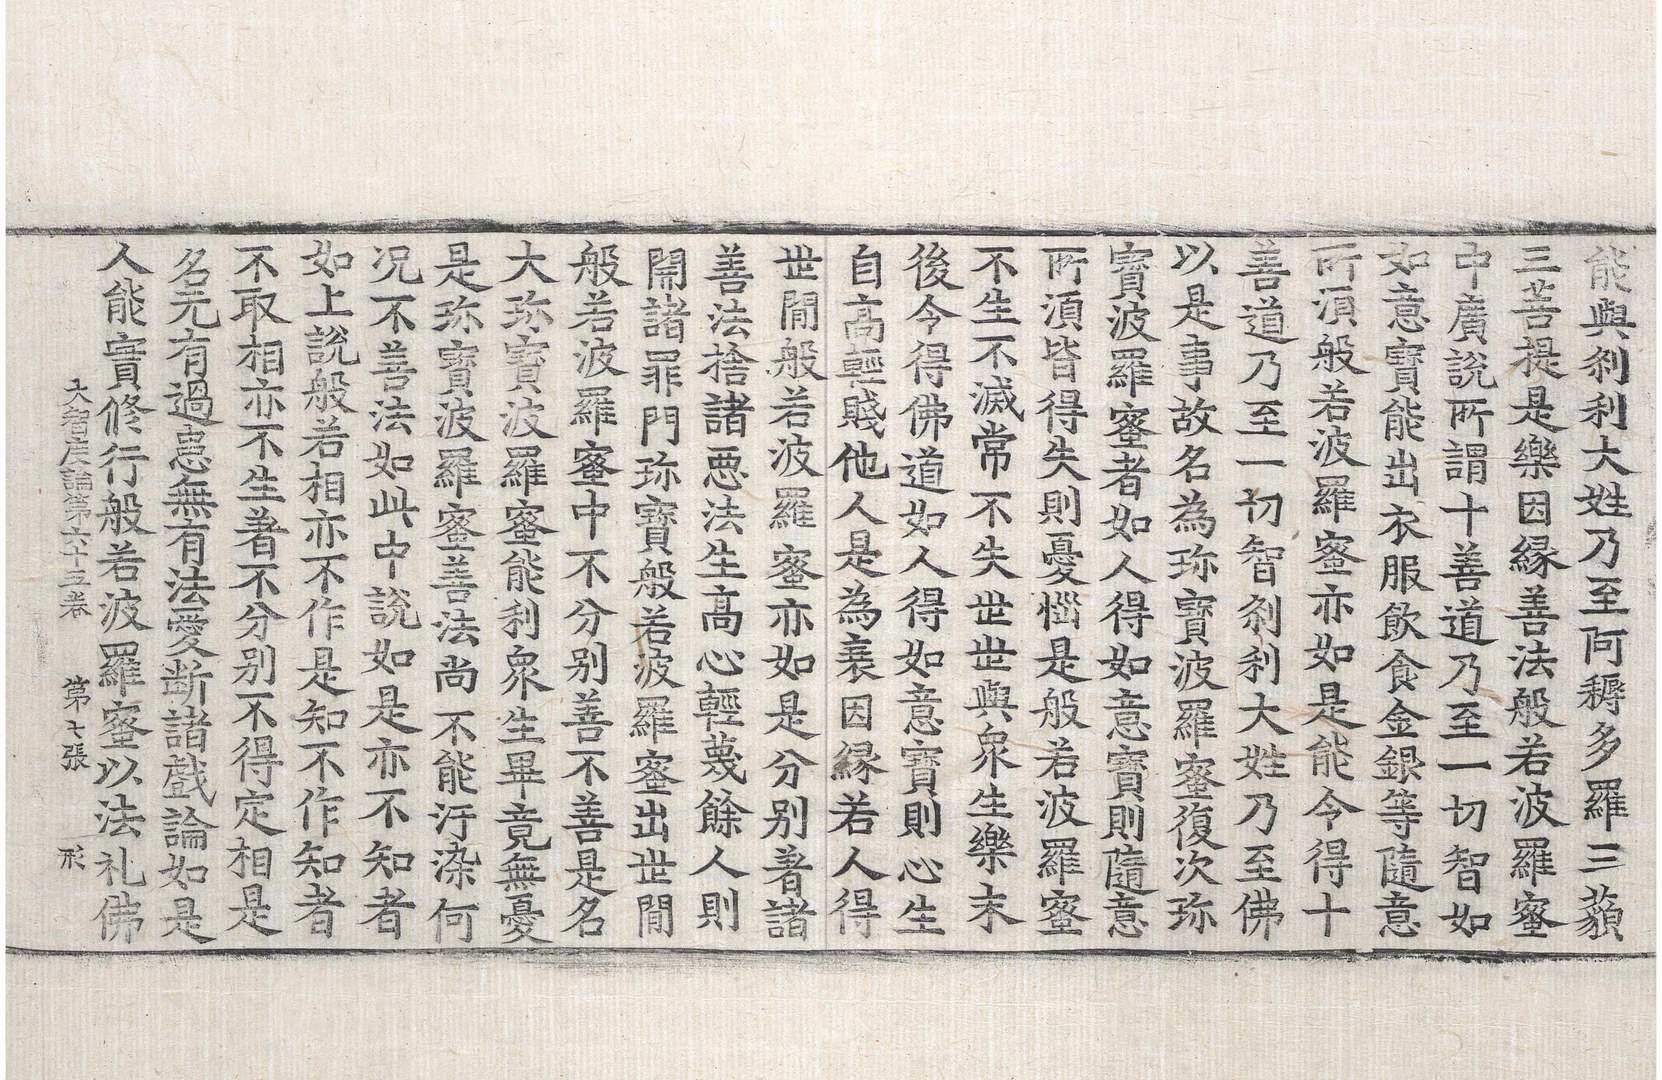 能與刹利大姓乃至阿耨多羅三藐
三菩提是樂因縁善法般若波羅蜜
中廣說所謂十善道乃至一切智如
如意寶能出衣服飮食金銀等隨意
所湏般若波羅蜜亦如是能令得十
善道乃至一切智刹利大姓乃至佛
以是事故名為珎寶波羅蜜復次珎
寶波羅蜜者如人得如意寶則隨意
所湏皆得失則憂惱是般若波羅蜜
不生不滅常不失世世與衆生樂末
後令得佛道如人得如意寶則心生
自高輕賤他人是為衰因縁若人得
世閒般若波羅蜜亦如是分别著諸
善法捨諸悪法生高心輕蔑餘人則
開諸罪門珎寶般若波羅蜜出世閒
般若波羅蜜中不分别善不善是名
大珎寶波羅蜜能利衆生畢竟無憂
是珎寶波羅蜜善法尚不能汙染何
况不善法如此中說如是亦不知者
如上說般若相亦不作是知不作知者
不取相亦不生著不分别不得定相是
名无有過㤪無有法愛断諸戲論如是
人能實修行般若波羅蜜以法礼佛
大智度論第六十五卷 第七張 形